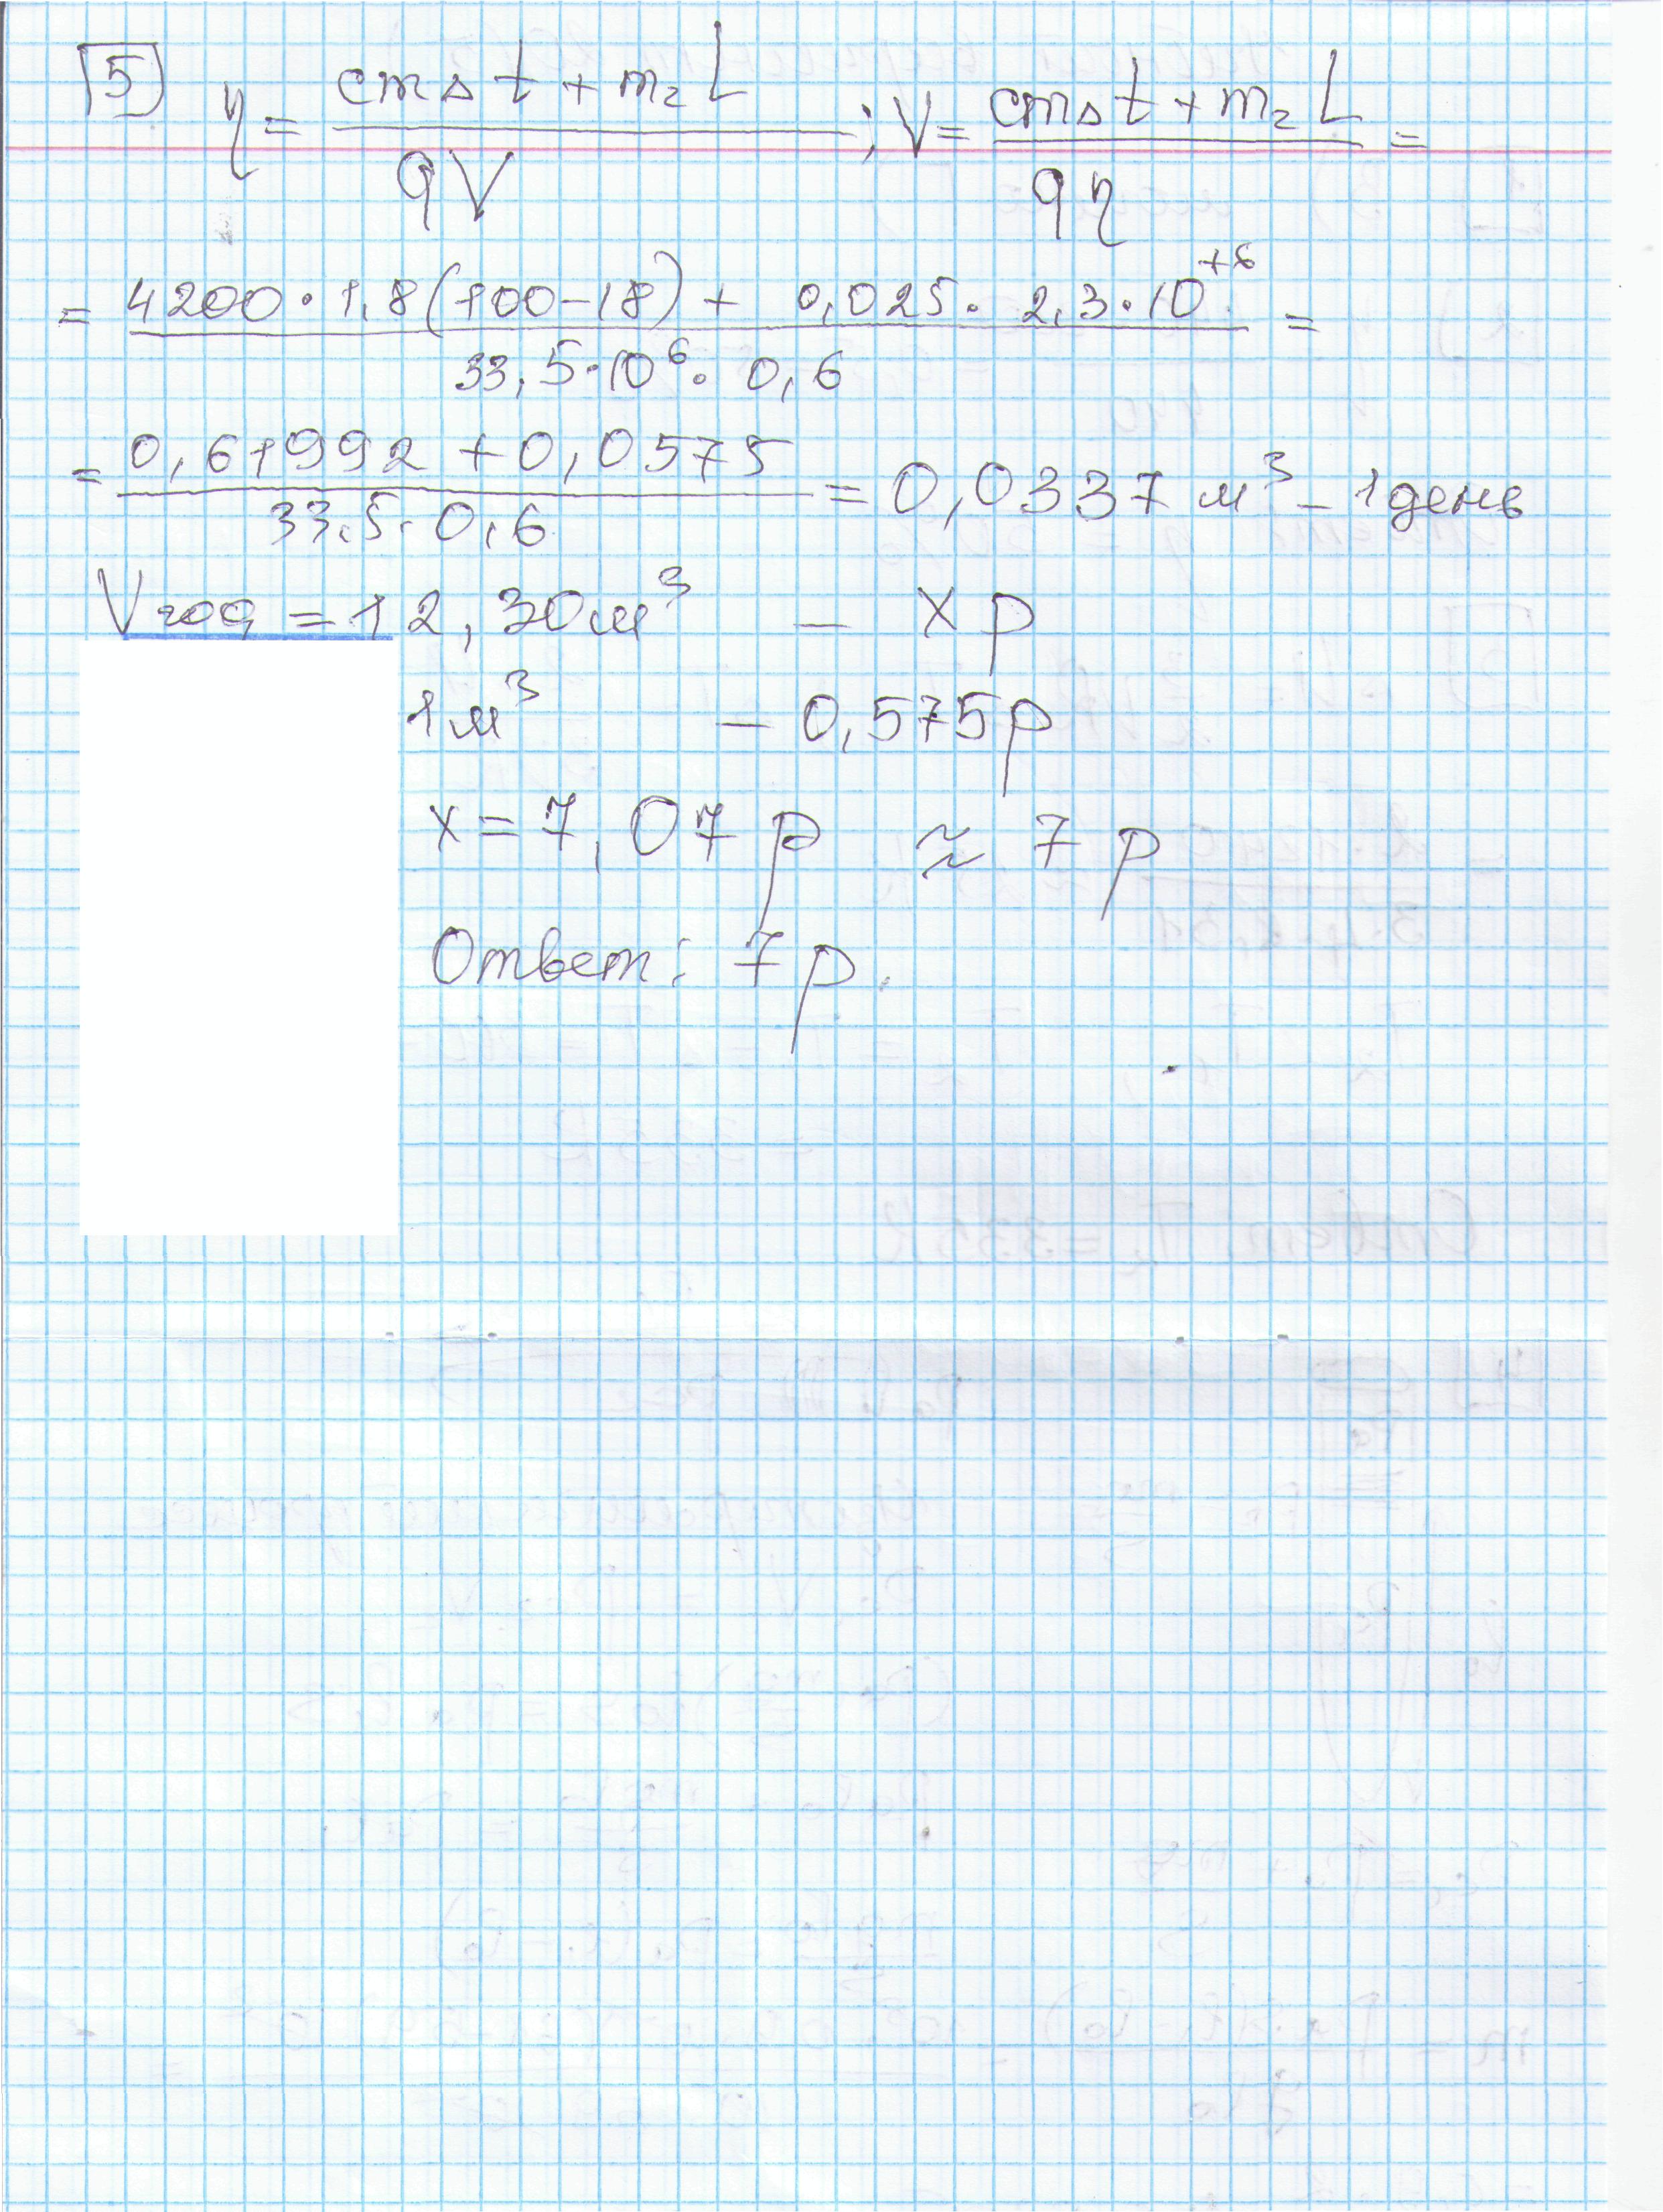 5 η = (cmΔt + m₂L) / (qV) ; V = (cmΔt + m₂L) / (qη) =
= (4200 · 1,8(100 – 18) + 0,025 · 2,3 · 10⁺⁶) / (33,5 · 10⁶ · 0,6) =
= (0,61992 + 0,0575) / (33,5 · 0,6) = 0,0337 м³ – 1 день
Vгод = 12,30 м³ – х р
1 м³ – 0,575 р
х = 7,07 р ≈ 7 р
Ответ: 7 р.